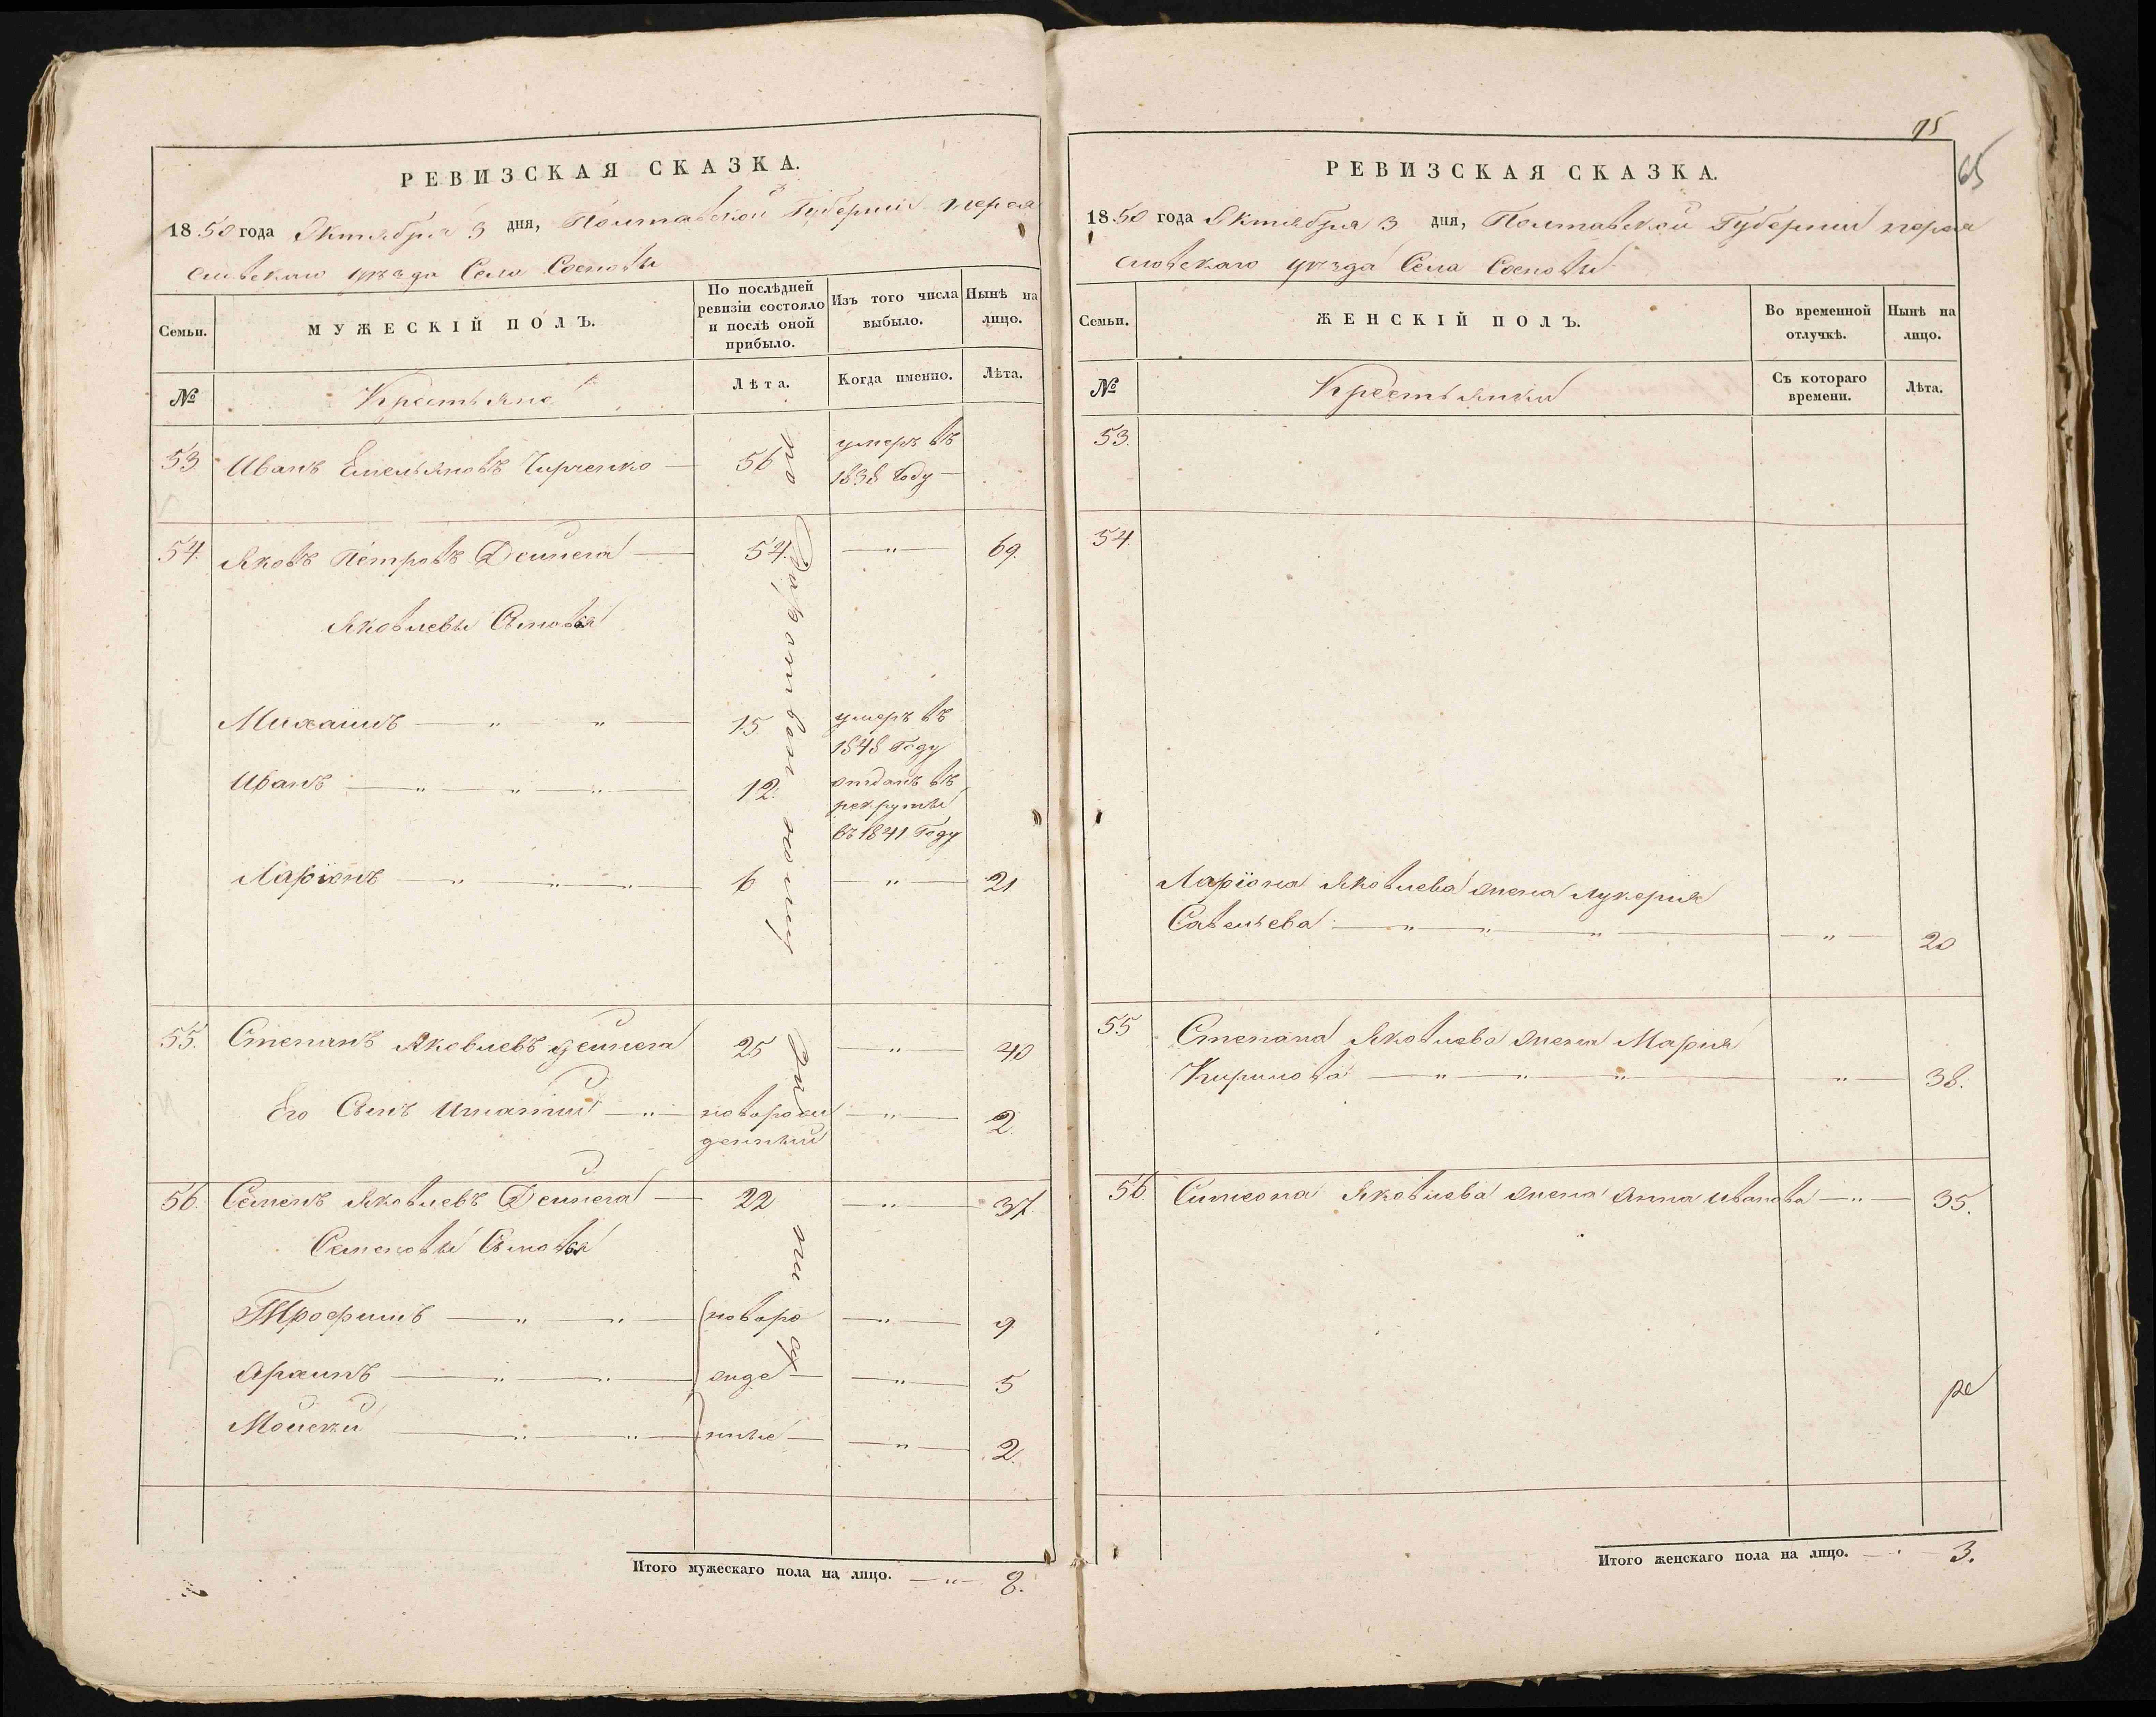 РЕВИЗСКАЯ СКАЗКА.
1850 года Октября 3 дня, Полтавской Губерніи перея
славскаго уѣзда Села Сосновы
Семьи. МУЖЕСКІЙ ПОЛЪ. По послѣдней ревизіи состояло и послѣ оной прибыло. Изъ того числа выбыло. Нынѣ на лицо.
№ Крестьяне Лѣта. Когда именно. Лѣта.
53 Иванъ Емельяновъ Чирченко 56 умеръ въ
1838 Году
54. Яковъ Петровъ Дейнега 54. 69.
Яковлевы Сыновья
Михаилъ 15 умеръ въ
1848 Году
Иванъ 12. отданъ въ
рекруты
въ 1841 Году
Ларіонъ 6 21
55. Степанъ Яковлевъ Дейнега 25 40
Его Сынъ Игнатий новорож 2.
денный
56. Семенъ Яковлевъ Дейнега 22 37
Семеновы Сыновья
Трофимъ новоро 9
Архипъ жде 5
Мойсей нные 2.
Итого мужескаго пола на лицо. 8.
75
65
РЕВИЗСКАЯ СКАЗКА.
1850 года Октября 3 дня, Полтавской Губерніи перея
славскаго уѣзда Села Сосновы
Семьи. ЖЕНСКІЙ ПОЛЪ. Во временной отлучкѣ. Нынѣ на лицо.
№ Крестьянки Съ котораго времени. Лѣта.
53.
54.
Ларіона Яковлева жена Лукерия
Савельева 20
55 Степана Яковлева жена Мария
Кирилова 38.
56. Симеона Яковлева жена Анна Иванова 35.
Итого женскаго пола на лицо. 3.